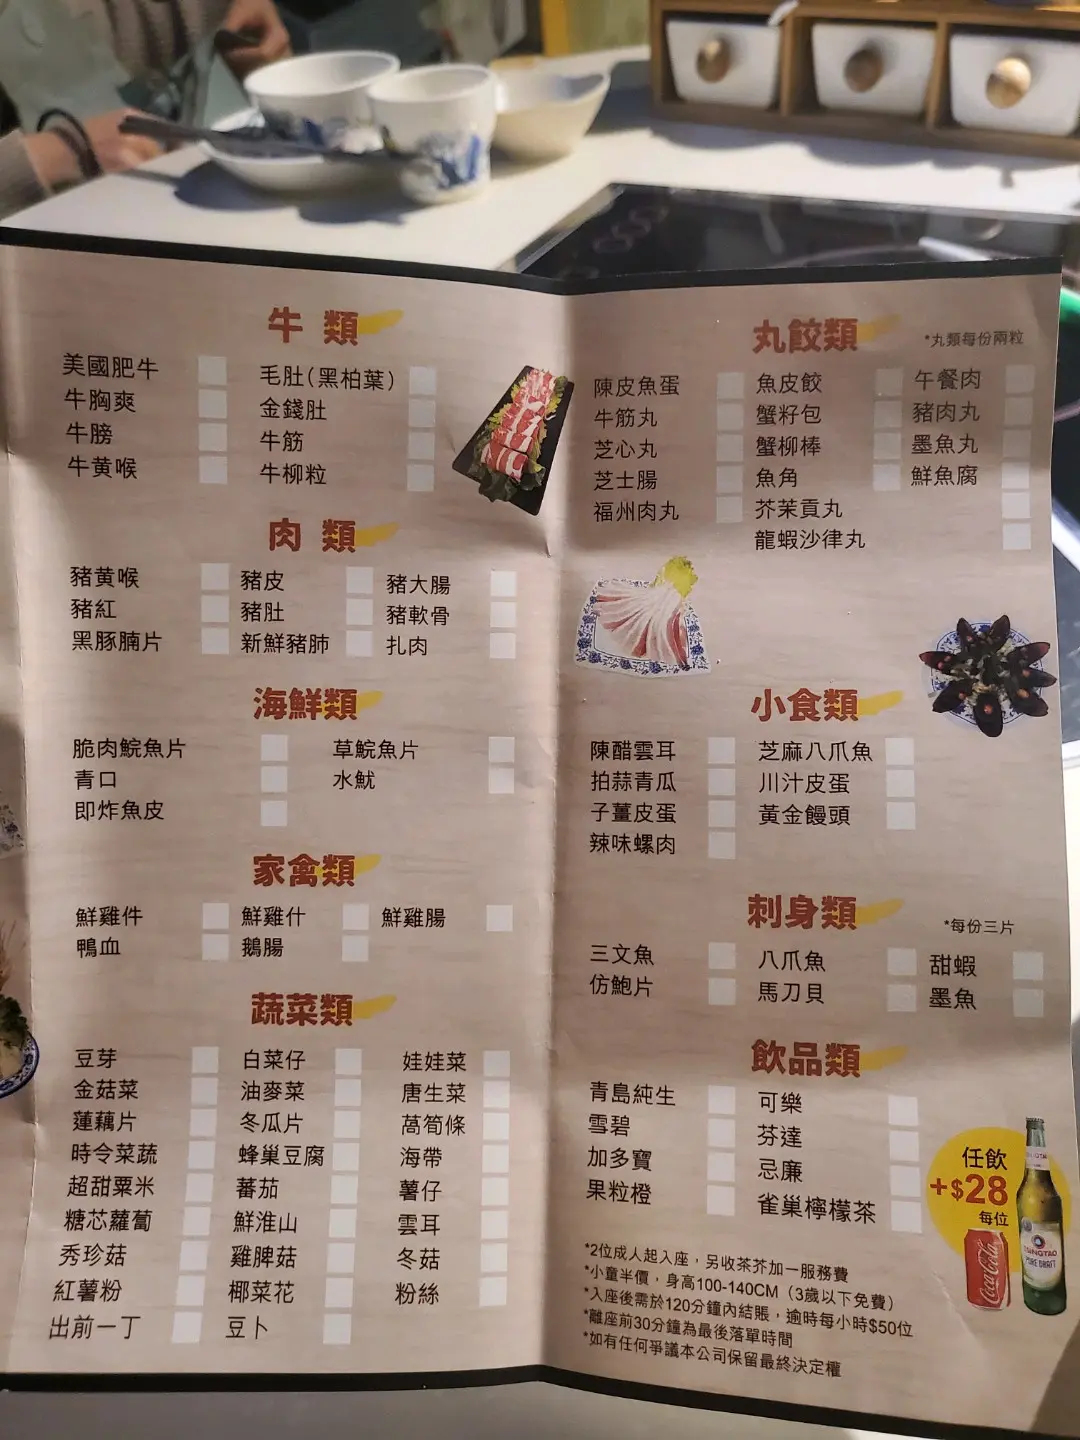 牛 類
美國肥牛
毛肚(黑柏葉)
牛胸爽
金錢肚
牛膀
牛筋
牛黄喉
牛柳粒
肉 類
豬黄喉
豬皮
豬大腸
豬紅
豬肚
豬軟骨
黑豚腩片
新鮮豬肺
扎肉
海鮮類
脆肉鯇魚片
草鯇魚片
青口
水魷
即炸魚皮
家禽類
鮮雞件
鮮雞什
鮮雞腸
鴨血
鵝腸
蔬菜類
豆芽
白菜仔
娃娃菜
金菇菜
油麥菜
唐生菜
蓮藕片
冬瓜片
萵筍條
時令菜蔬
蜂巢豆腐
海帶
超甜粟米
蕃茄
薯仔
糖芯蘿蔔
鮮淮山
雲耳
秀珍菇
雞脾菇
冬菇
紅薯粉
椰菜花
粉絲
出前一丁
豆卜
丸餃類
*丸類每份兩粒
陳皮魚蛋
魚皮餃
午餐肉
牛筋丸
蟹籽包
豬肉丸
芝心丸
蟹柳棒
墨魚丸
芝士腸
魚角
鮮魚腐
福州肉丸
芥茉貢丸
龍蝦沙律丸
小食類
陳醋雲耳
芝麻八爪魚
拍蒜青瓜
川汁皮蛋
子薑皮蛋
黃金饅頭
辣味螺肉
刺身類
*每份三片
三文魚
八爪魚
甜蝦
仿鮑片
馬刀貝
墨魚
飲品類
青島純生
可樂
雪碧
芬達
加多寶
忌廉
果粒橙
雀巢檸檬茶
任飲
+$28
每位
Coca-Cola
TSINGTAO
PURE DRAFT
*2位成人起入座，另收茶芥加一服務費
*小童半價，身高100-140CM（3歲以下免費）
*入座後需於120分鐘內結賬，逾時每小時$50位
*離座前30分鐘為最後落單時間
*如有任何爭議本公司保留最終決定權